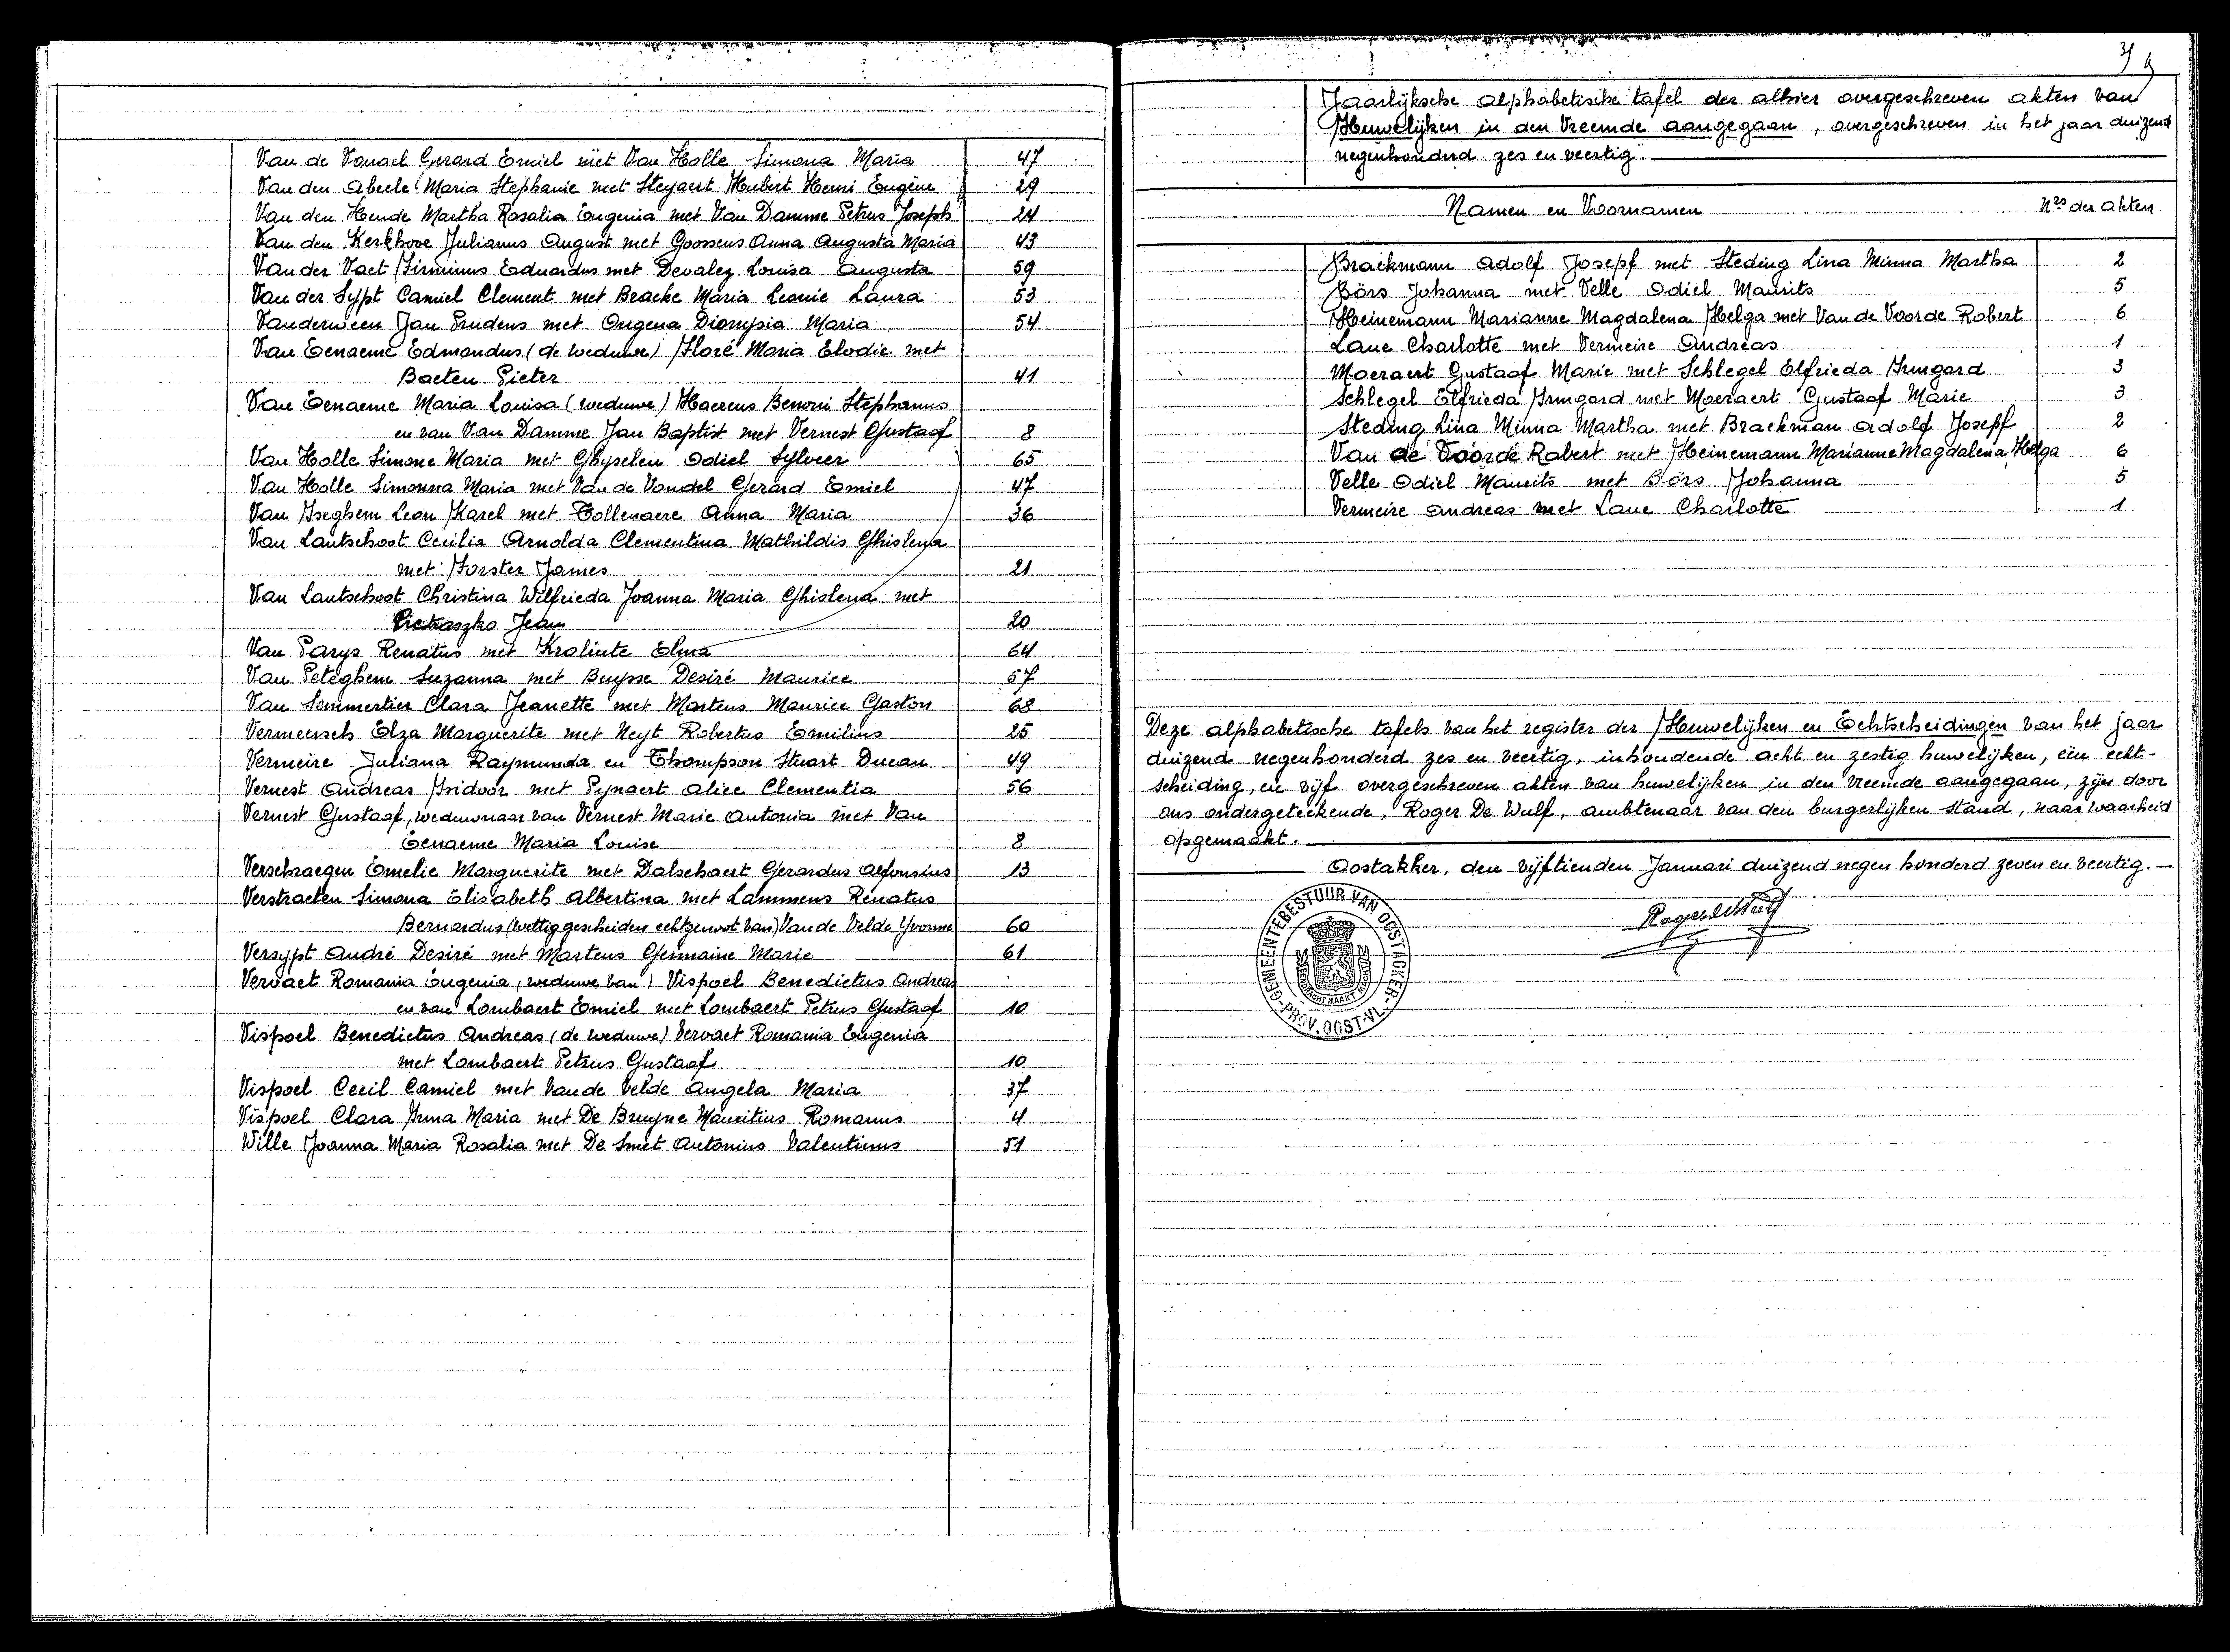 Van de Vondel Gerard Emiel met Van Holle Simona Maria 47
Van den Abeele Maria Stephanie met Steyaert Hubert Henri Eugène 29
Van den Hende Martha Rosalia Eugenia met Van Damme Petrus Joseph 24
Van den Kerkhove Julianus August met Goossens Anna Augusta Maria 43
Van der Vaet Firminus Eduardus met Devalez Louisa Augusta 59
Van der Sypt Camiel Clement met Bracke Maria Leonie Laura 53
Vanderween Jan Prudens met Ongena Dionysia Maria 54
Van Eenaeme Edmondus (de weduwe) Floré Maria Elodie met
Baeten Pieter 41
Van Eenaeme Maria Louisa (weduwe) Haerens Benoni Stephanus
en van Van Damme Jan Baptist met Vernest Gustaaf 8
Van Holle Simone Maria met Ghyselen Odiel Sylveer 65
Van Holle Simonna Maria met Van de Vondel Gerard Emiel 47
Van Iseghem Leon Karel met Tollenaere Anna Maria 36
Van Lantschoot Cecilia Arnolda Clementina Mathildis Ghislena
met Forster James 21
Van Lantschoot Christina Wilfrieda Joanna Maria Ghislena met
Pietraszko Jean 20
Van Parys Renatus met Krolinte Elma 64
Van Peteghem Suzanna met Buysse Desiré Maurice 57
Van Semmertier Clara Jeanette met Martens Maurice Gaston 68
Vermeersch Elza Marguerite met Neyt Robertus Emilius 25
Vermeire Juliana Raymunda en Thompson Stuart Ducan 49
Vernest Andreas Isidoor met Pynaert Alice Clementia 56
Vernest Gustaaf, weduwnaar van Vernest Marie Antonia met Van
Eenaeme Maria Louise 8
Verschraegen Emelie Marguerite met Dalschaert Gerardus Alfonsius 13
Verstraeten Simona Elisabeth Albertina met Lammens Renatus
Bernardus (wettig gescheiden echtgenoot van) Van de Velde Yvonne 60
Versypt André Desiré met Martens Germaine Marie 61
Vervaet Romania Eugenia, weduwe van) Vispoel Benedictus Andreas
en van Lombaert Emiel met Lombaert Petrus Gustaaf 10
Vispoel Benedictus Andreas (de weduwe) Vervaet Romania Eugenia
met Lombaert Petrus Gustaaf 10
Vispoel Cecil Camiel met Van de Velde Angela Maria 37
Vispoel Clara Irma Maria met De Bruyne Mauritius Romanus 4
Wille Joanna Maria Rosalia met De Smet Antonius Valentinus 51
Jaarlijksche alphabetische tafel der alhier overgeschreven akten van
Huwelijken in den Vreemde aangegaan, overgeschreven in het jaar duizend
negenhonderd zes en veertig.
Namen en Voornamen Nrs der akten
Brackmann Adolf Josepf met Steding Lina Minna Martha 2
Börs Johanna met Velle Odiel Maurits 5
Heinemann Marianne Magdalena Helga met Van de Voorde Robert 6
Laue Charlotte met Vermeire Andreas 1
Moeraert Gustaaf Marie met Schlegel Elfrieda Irmgard 3
Schlegel Elfrieda Irmgard met Moeraert Gustaaf Marie 3
Steding Lina Minna Martha met Brackman Adolf Josepf 2
Van de Voorde Robert met Heinemann Marianne Magdalena Helga 6
Velle Odiel Maurits met Börs Johanna 5
Vermeire Andreas met Laue Charlotte 1
Deze alphabetische tafels van het register der Huwelijken en Echtscheidingen van het jaar
duizend negenhonderd zes en veertig, inhoudende acht en zestig huwelijken, één echt-
scheiding, en vijf overgeschreven akten van huwelijken in den vreemde aangegaan, zijn door
ons ondergeteekende, Roger De Wulf, ambtenaar van den burgerlijken stand, naar waarheid
opgemaakt.
Oostakker, den vijftienden Januari duizend negen honderd zeven en veertig.
GEMEENTEBESTUUR VAN OOSTACKER
PROV. OOST-VL.
EENDRACHT MAAKT MACHT
Roger De Wulf